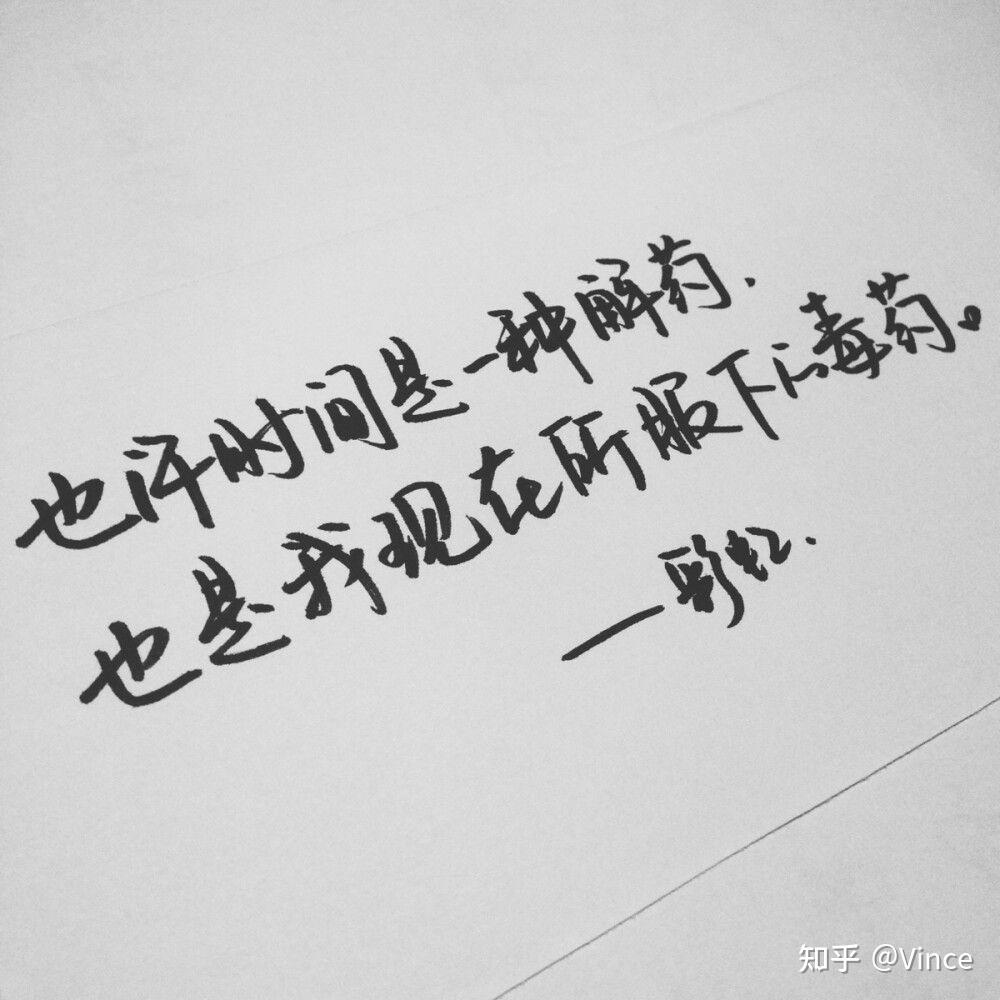 也许时间是一种解药.
也是我现在所服下心毒药。
—彩虹.
知乎 @Vince